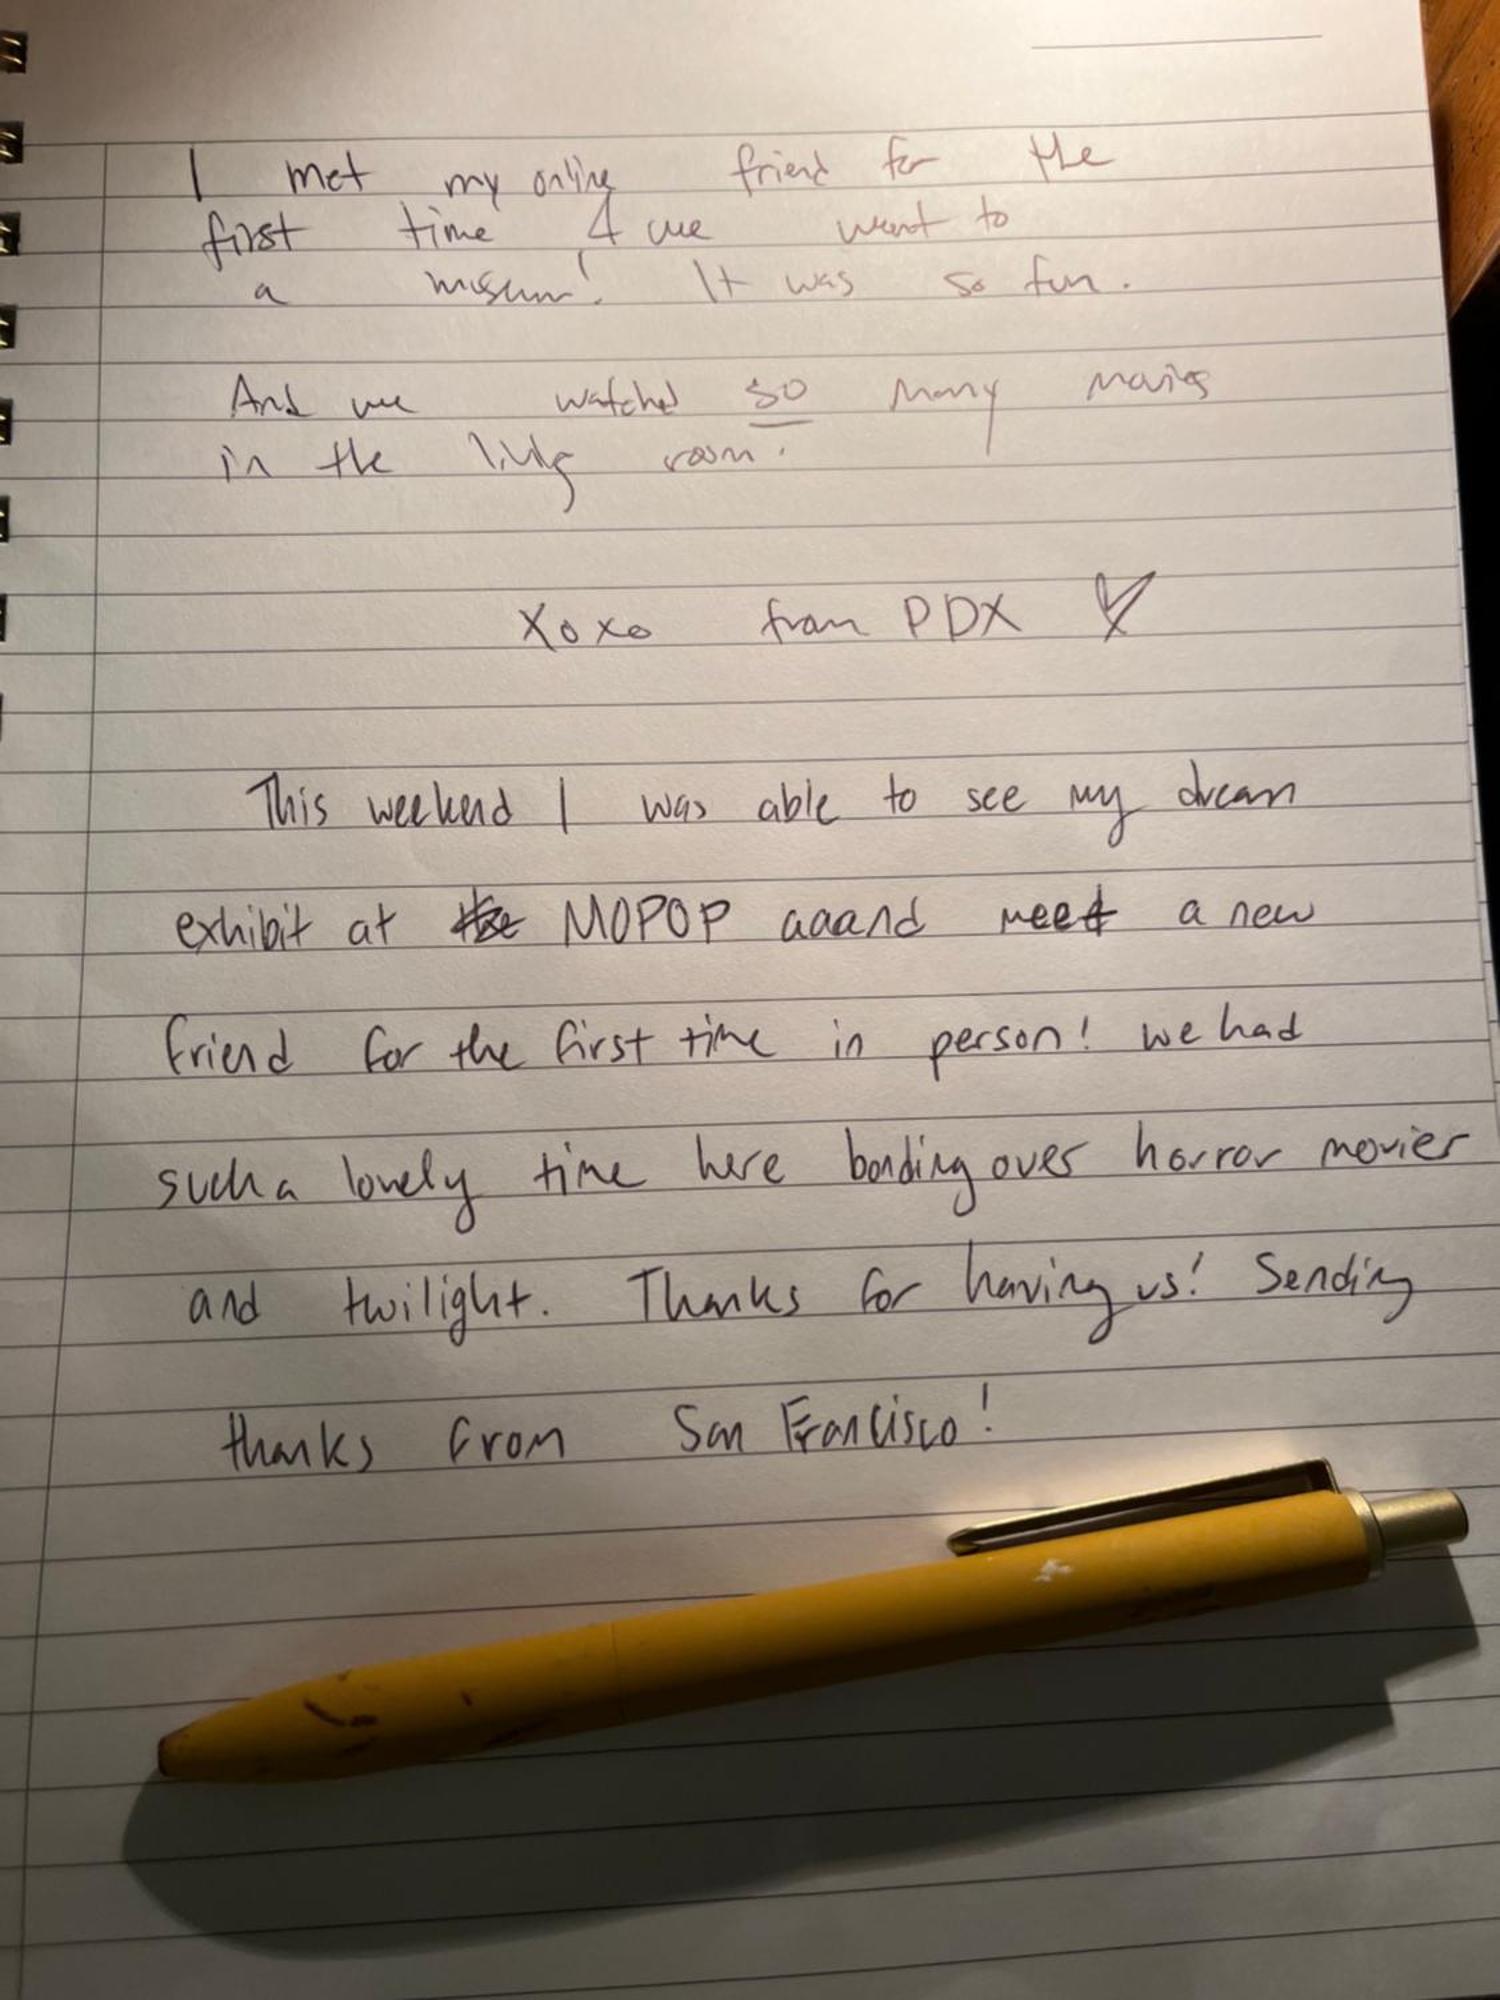 I met my online friend for the
first time & we went to
a museum! It was so fun.
And we watched so many movies
in the living room.
xoxo from PDX
This weekend I was able to see my dream
exhibit at the MOPOP aaand meet a new
friend for the first time in person! we had
such a lovely time here bonding over horror movies
and twilight. Thanks for having us! Sending
thanks from San Francisco!